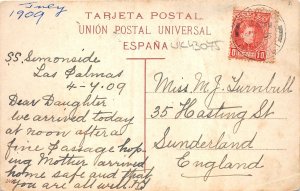 July
1909
TARJETA POSTAL
UNIÓN POSTAL UNIVERSAL
ESPAÑA
UK43075
SS Simonside
Las Palmas
4-7-09
Dear Daughter
we arrived today
at noon after a
fine passage hop-
ing Mother arrived
home safe and that
you are all well
Miss M. J. Turnbull
35 Hasting St
Sunderland
England